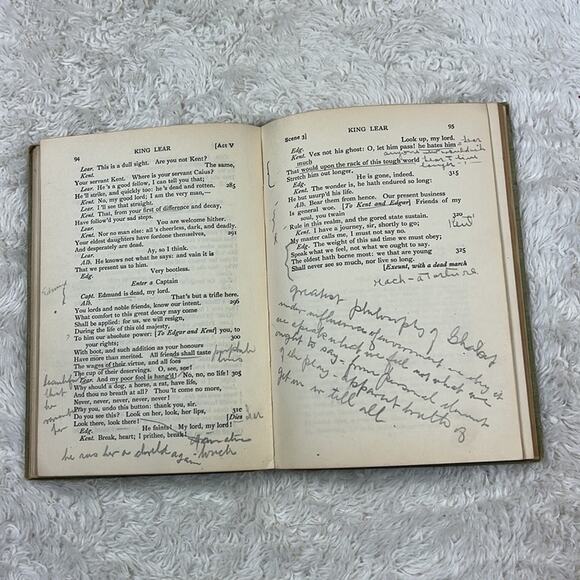 94 KING LEAR [Act V
Lear. This is a dull sight. Are you not Kent?
Kent. The same,
Your servant Kent. Where is your servant Caius?
Lear. He's a good fellow, I can tell you that;
He'll strike, and quickly too: he's dead and rotten. 285
Kent. No, my good lord; I am the very man,—
Lear. I'll see that straight.
Kent. That, from your first of difference and decay,
Have follow'd your sad steps.
Lear. You are welcome hither.
Kent. Nor no man else: all's cheerless, dark, and deadly.
Your eldest daughters have fordone themselves, 291
And desperately are dead.
Lear. Ay, so I think.
Alb. He knows not what he says: and vain it is
That we present us to him.
Edg. Very bootless.
Enter a Captain
Capt. Edmund is dead, my lord.
Alb. That's but a trifle here.
You lords and noble friends, know our intent. 296
What comfort to this great decay may come
Shall be applied: for us, we will resign,
During the life of this old majesty,
To him our absolute power: [To Edgar and Kent] you, to
your rights; 300
With boot, and such addition as your honours
Have more than merited. All friends shall taste
The wages of their virtue, and all foes
The cup of their deservings. O, see, see!
Lear. And my poor fool is hang'd! No, no, no life! 305
Why should a dog, a horse, a rat, have life,
And thou no breath at all? Thou'lt come no more,
Never, never, never, never, never!
Pray you, undo this button: thank you, sir.
Do you see this? Look on her, look, her lips, 310
Look there, look there! [Dies
Edg. He faints! My lord, my lord!
Kent. Break, heart; I prithee, break!
her
he sees her a child again
Scene 3] KING LEAR 95
Edg. Look up, my lord.
Kent. Vex not his ghost: O, let him pass! he hates him
much
That would upon the rack of this tough world 315
Stretch him out longer.
Edg. He is gone, indeed.
Kent. The wonder is, he hath endured so long:
He but usurp'd his life.
Alb. Bear them from hence. Our present business
Is general woe. [To Kent and Edgar] Friends of my
soul, you twain 320
Rule in this realm, and the gored state sustain.
Kent. I have a journey, sir, shortly to go;
My master calls me, I must not say no.
Edg. The weight of this sad time we must obey;
Speak what we feel, not what we ought to say.
The oldest hath borne most: we that are young 325
Shall never see so much, nor live so long.
[Exeunt, with a dead march
Kent
rack - a torture
greatest philosophy of Shakes
under influence of
we speak what we feel not what we
ought to say - from
of the play - apparent
get on in till all